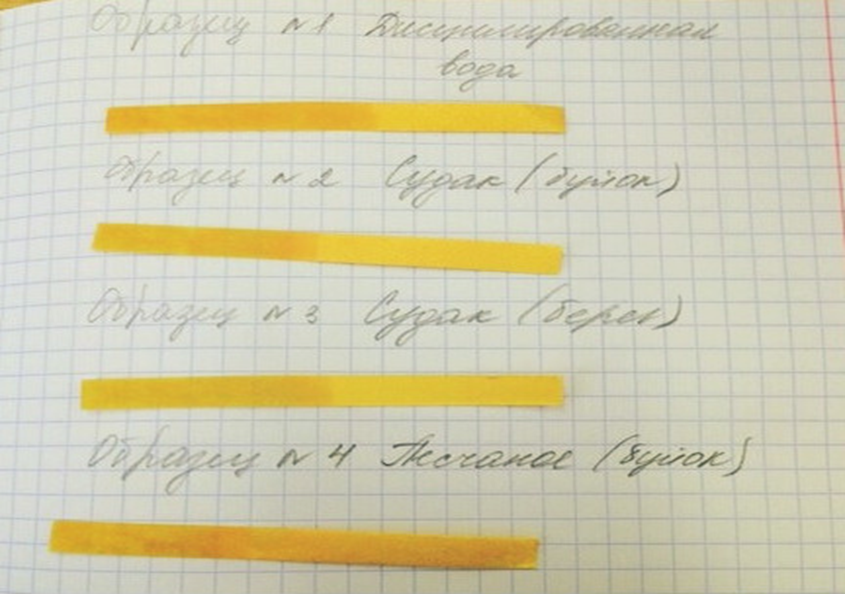 Образец №1 Дистиллированная
вода
Образец №2 Судак (буйок)
Образец №3 Судак (берег)
Образец №4 Песчаное (буйок)